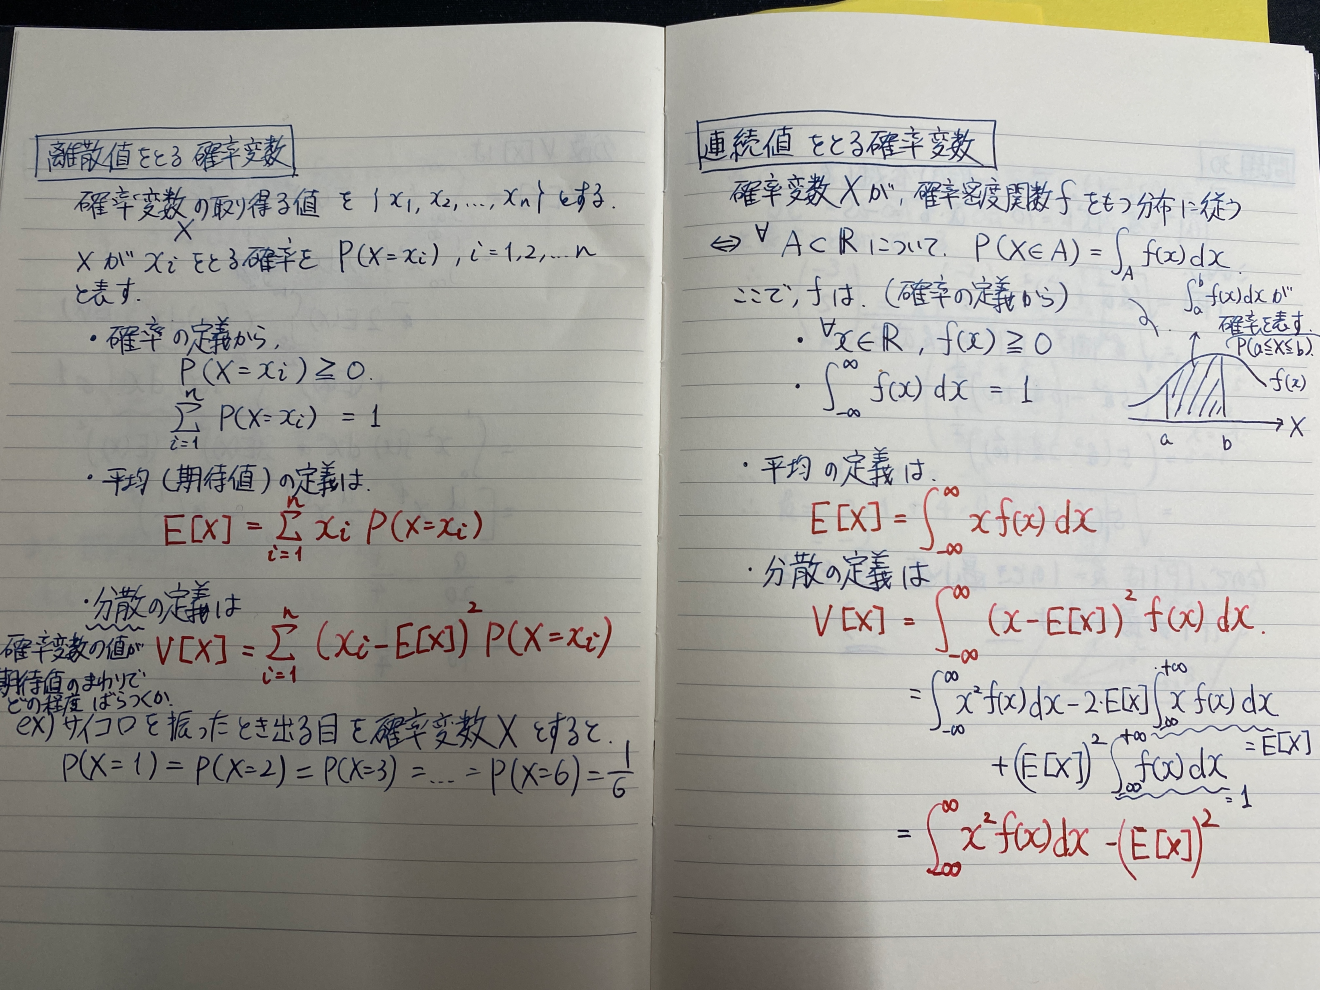 離散値をとる確率変数
確率変数の取り得る値を{x₁, x₂, ..., xₙ}とする.
X
Xがxᵢをとる確率を P(X=xᵢ), i=1,2,...n
と表す.
・確率の定義から,
P(X=xᵢ)≧0.
∑_{i=1}^{n} P(X=xᵢ) = 1
・平均(期待値)の定義は.
E[X] = ∑_{i=1}^{n} xᵢ P(X=xᵢ)
・分散の定義は
V[X] = ∑_{i=1}^{n} (xᵢ-E[X])² P(X=xᵢ)
確率変数の値が
期待値のまわりで
どの程度ばらつくか.
ex) サイコロを振ったとき出る目を確率変数Xとすると.
P(X=1) = P(X=2) = P(X=3) = ... = P(X=6) = 1/6
連続値をとる確率変数
確率変数Xが, 確率密度関数fをもつ分布に従う
⇔ ∀A⊂ℝについて. P(X∈A) = ∫_A f(x)dx.
ここで, fは. (確率の定義から)
・∀x∈ℝ, f(x)≧0
・∫_{-∞}^{∞} f(x)dx = 1
∫_a^b f(x)dxが
確率を表す.
P(a≦X≦b).
f(x)
X
a b
・平均の定義は.
E[X] = ∫_{-∞}^{∞} x f(x)dx
・分散の定義は
V[X] = ∫_{-∞}^{∞} (x-E[X])² f(x)dx.
= ∫_{-∞}^{∞} x² f(x)dx - 2・E[X] ∫_{-∞}^{+∞} x f(x)dx
= E[X]
+ (E[X])² ∫_{-∞}^{+∞} f(x)dx
= 1
= ∫_{-∞}^{∞} x² f(x)dx - (E[X])²